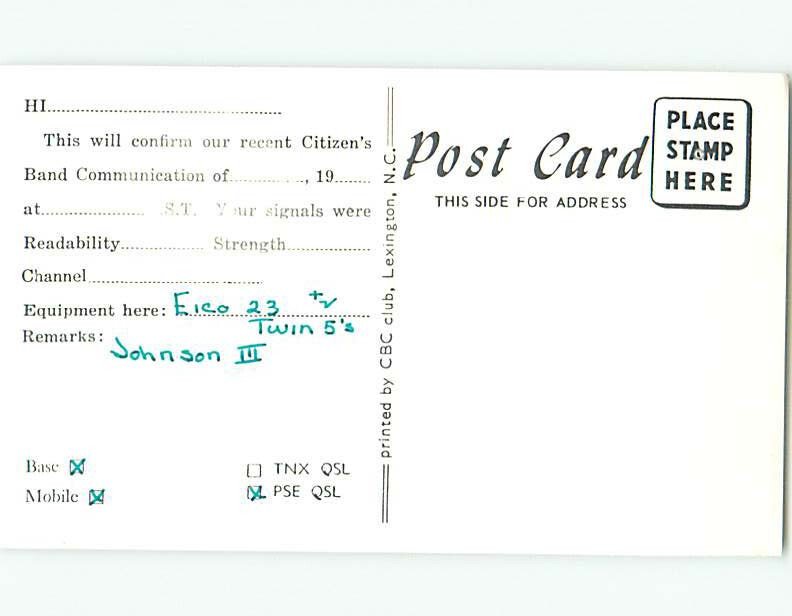 HI
This will confirm our recent Citizen's
Band Communication of , 19
at S.T. Your signals were
Readability Strength
Channel
Equipment here: Eico 23 +2
Twin 5's
Remarks:
Johnson III
Base
Mobile
TNX QSL
PSE QSL
printed by CBC club, Lexington, N.C.
Post Card
THIS SIDE FOR ADDRESS
PLACE
STAMP
HERE